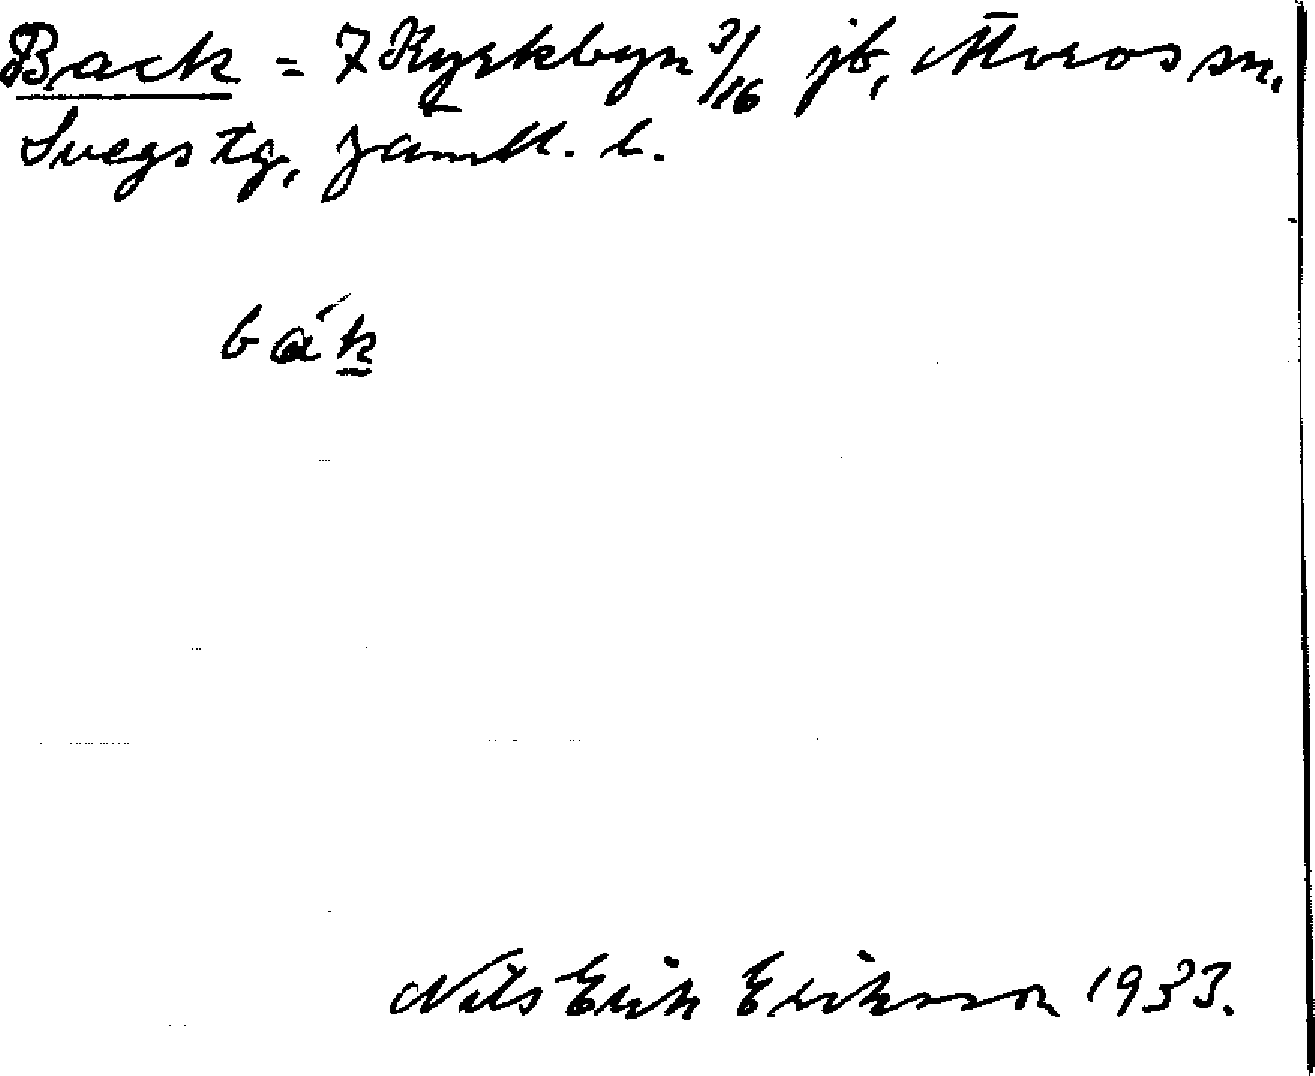 Back = 7 Kyrkbyn 3/16 jb, Älvros sn.
Svegs tg, Jämtl. l.
bák
Nils Erik Eriksson 1933.